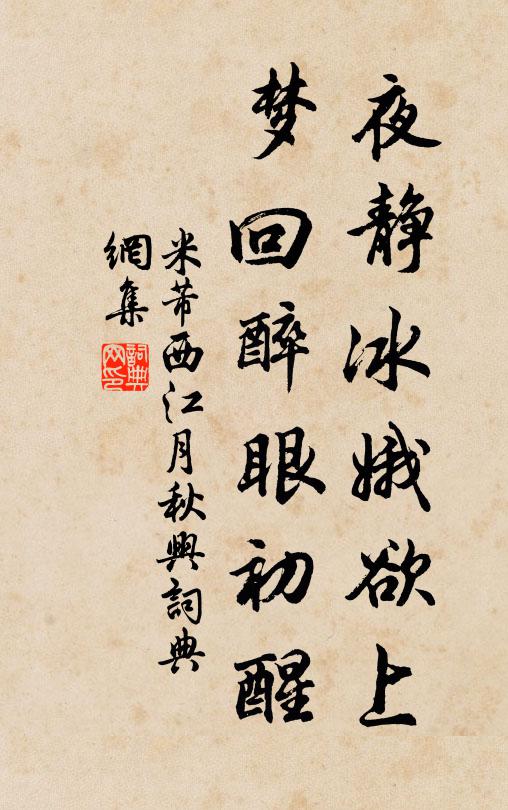 夜静冰娥欲上
梦回醉眼初醒
米芾西江月秋興詞典
網集
詞典
网印